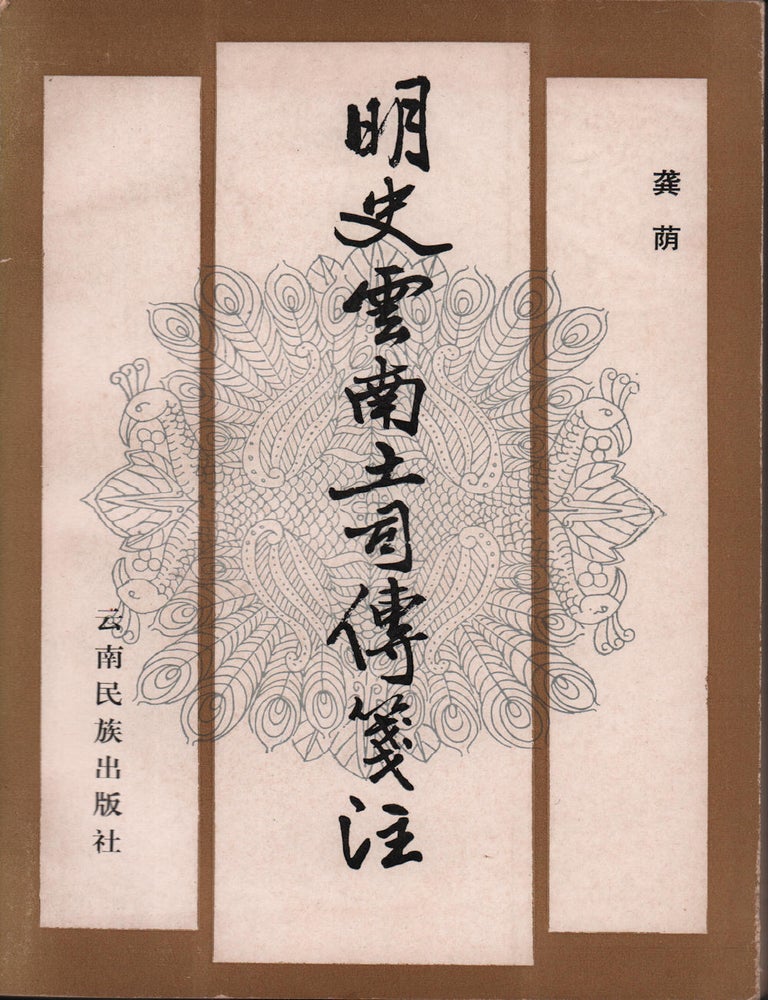 龚荫
明史雲南土司傳箋注
云南民族出版社